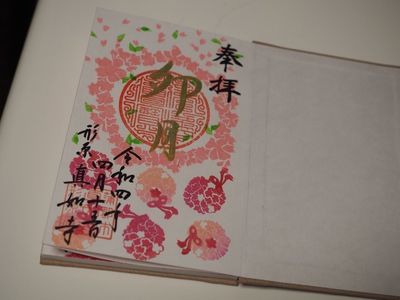 奉拝
卯月
令和四年
四月十一日
形原 真如寺